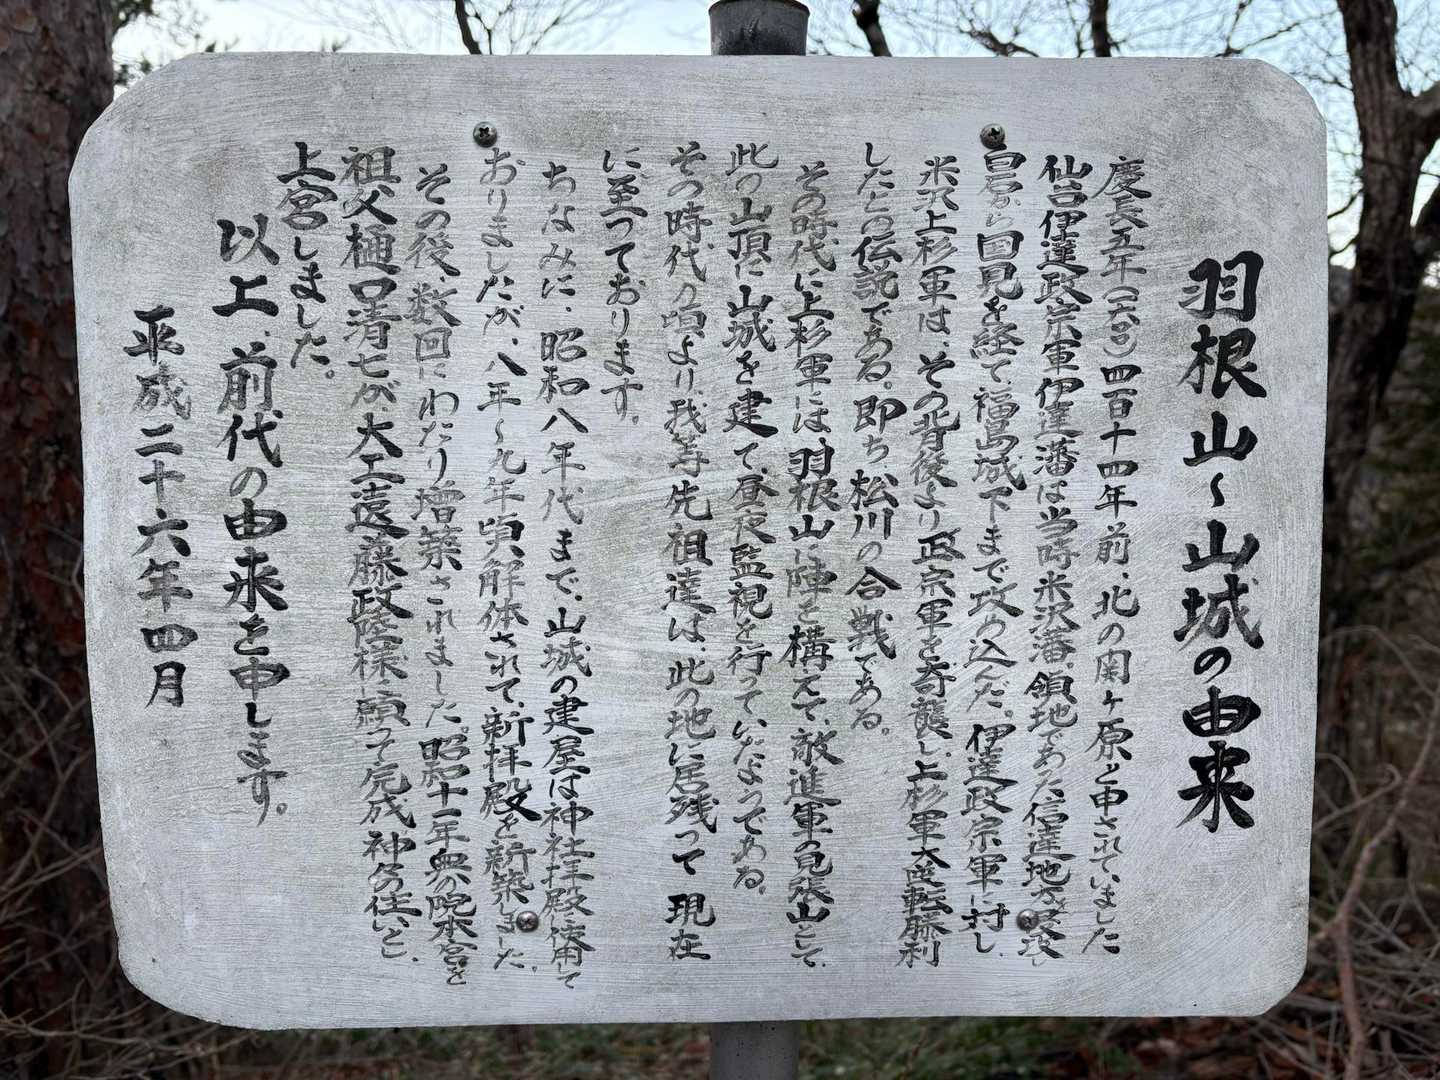 羽根山〜山城の由来
慶長五年(一六〇〇)四百十四年前、北の関ヶ原と申されていました
仙台伊達政宗軍伊達藩は当時米沢藩、領地であった信達地方を
白石から国見を経て、福島城下まで攻め込んだ。伊達政宗軍に対し
米沢上杉軍は、その背後より政宗軍を奇襲し、上杉軍大逆転勝利
したとの伝説である。即ち、松川の合戦である。
その時代に上杉軍には、羽根山に陣を構えて、敵進軍の見張山として、
此の山頂に山城を建て、昼夜監視を行っていたようである。
その時代の頃より、我等先祖達は、此の地に居残って現在
に至っております。
ちなみに、昭和八年代まで、山城の建屋は神社拝殿に使用して
おりましたが、八年〜九年頃、解体されて、新拝殿を新築しました。
その後、数回にわたり増築されました。昭和十一年奥の院本宮を
祖父樋口清七が、大工遠藤政陸様に願って完成神の住いとし、
上宮しました。
以上、前代の由来を申します。
平成二十六年四月